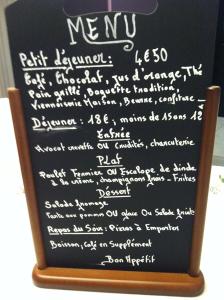 MENU
Petit déjeuner: 4€50
Café, Chocolat, jus d'orange, Thé
Pain grillé, Baguette tradition,
Viennoiserie Maison, Beurre, confiture
Déjeuner: 18€; moins de 15ans 12
Entrée
Avocat crevette OU Crudités, charcuterie
Plat
Poulet Fermier OU Escalope de dinde
à la crème, champignons frais - Frites
Déssert
Salade fromage
Tarte aux pommes OU glace Ou Salade fruits
Repas du Soir: Pizzas à Emporter
Boisson, Café en Supplément
Bon Appétit